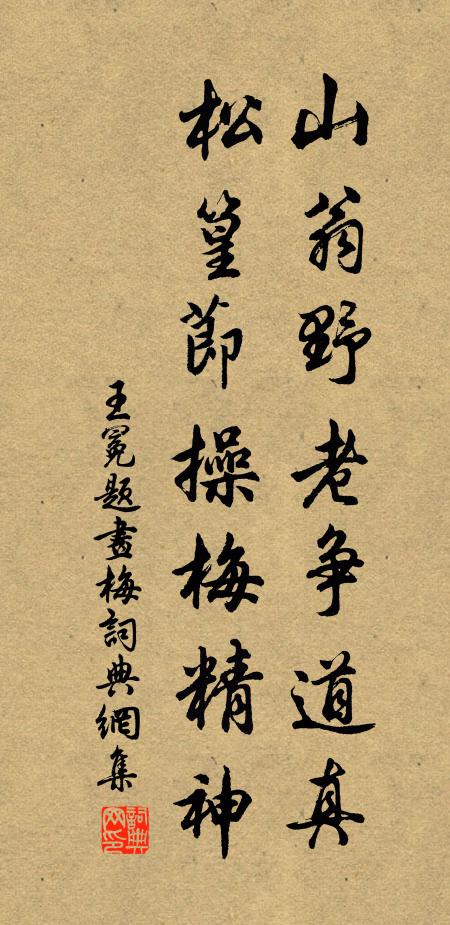 山翁野老争道真
松篁節操梅精神
王冕题畫梅詞典網集
詞典网印